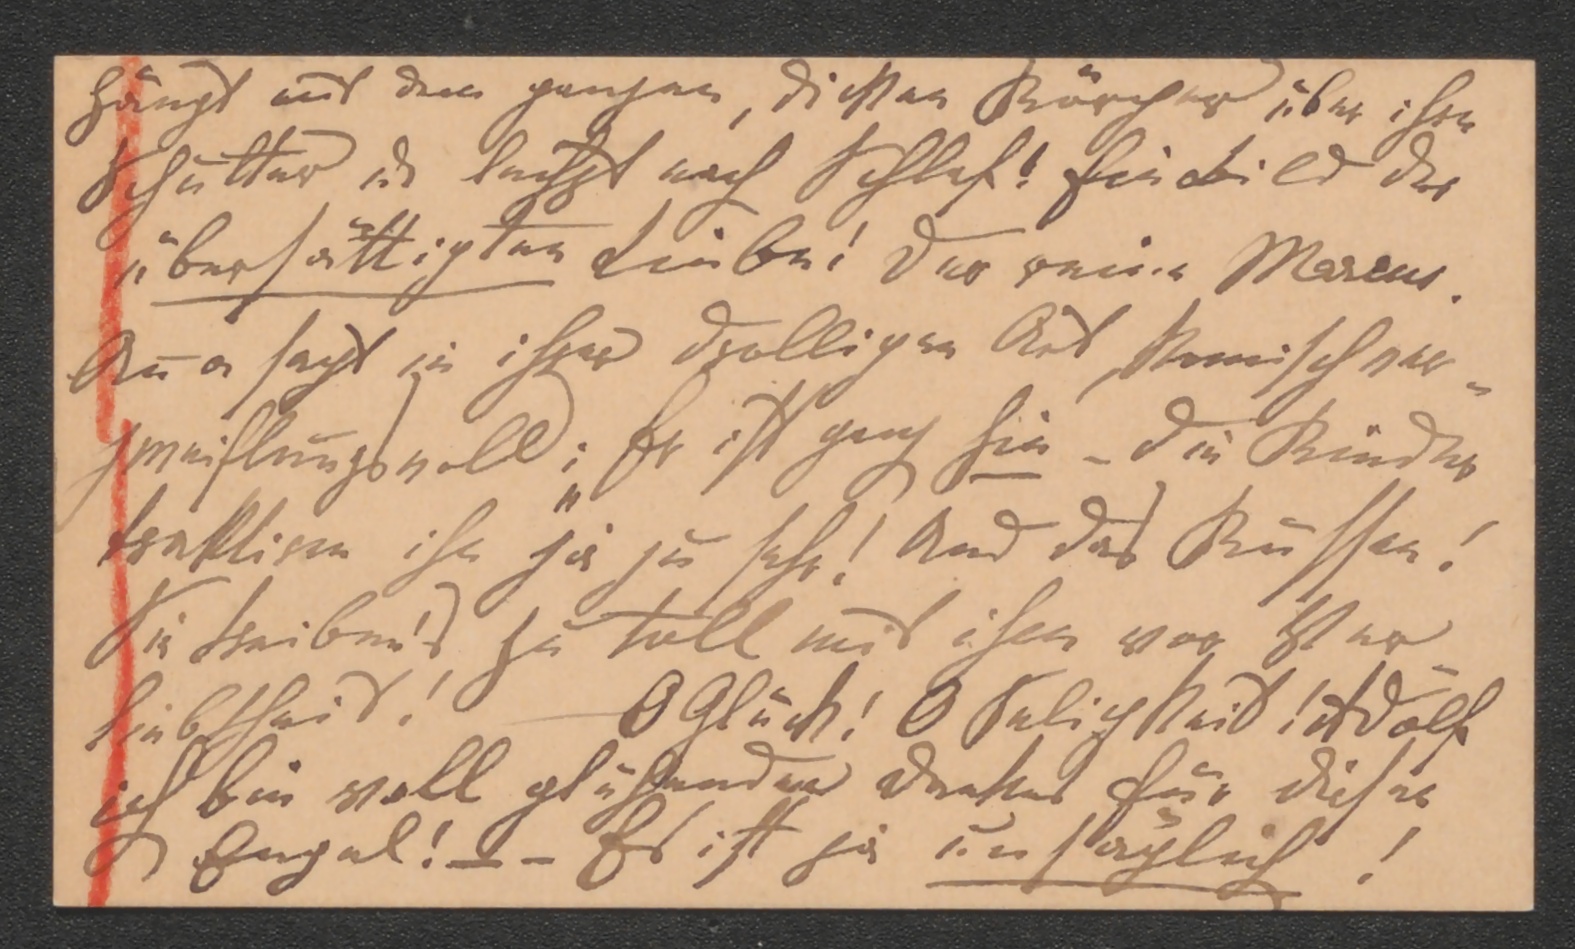 hängt mit dem ganzen, dicken Körper über ihre
Schulter u. lechzt nach Schlaf! Ein Bild der
übersättigten Liebe! Der reine Marcus.
Anna sagt in ihrer drolligen Art, komisch ver-
zweiflungsvoll: Er ist ganz hin – die Kinder
traktiren ihn ja zu sehr! Und das Küssen!
Sie treiben's zu toll mit ihm vor Ver-
liebtheit! — O Glück! O Seligkeit! Adolf
ich bin voll glühenden Dankes für diesen
Engel! – – Es ist ja unsäglich!